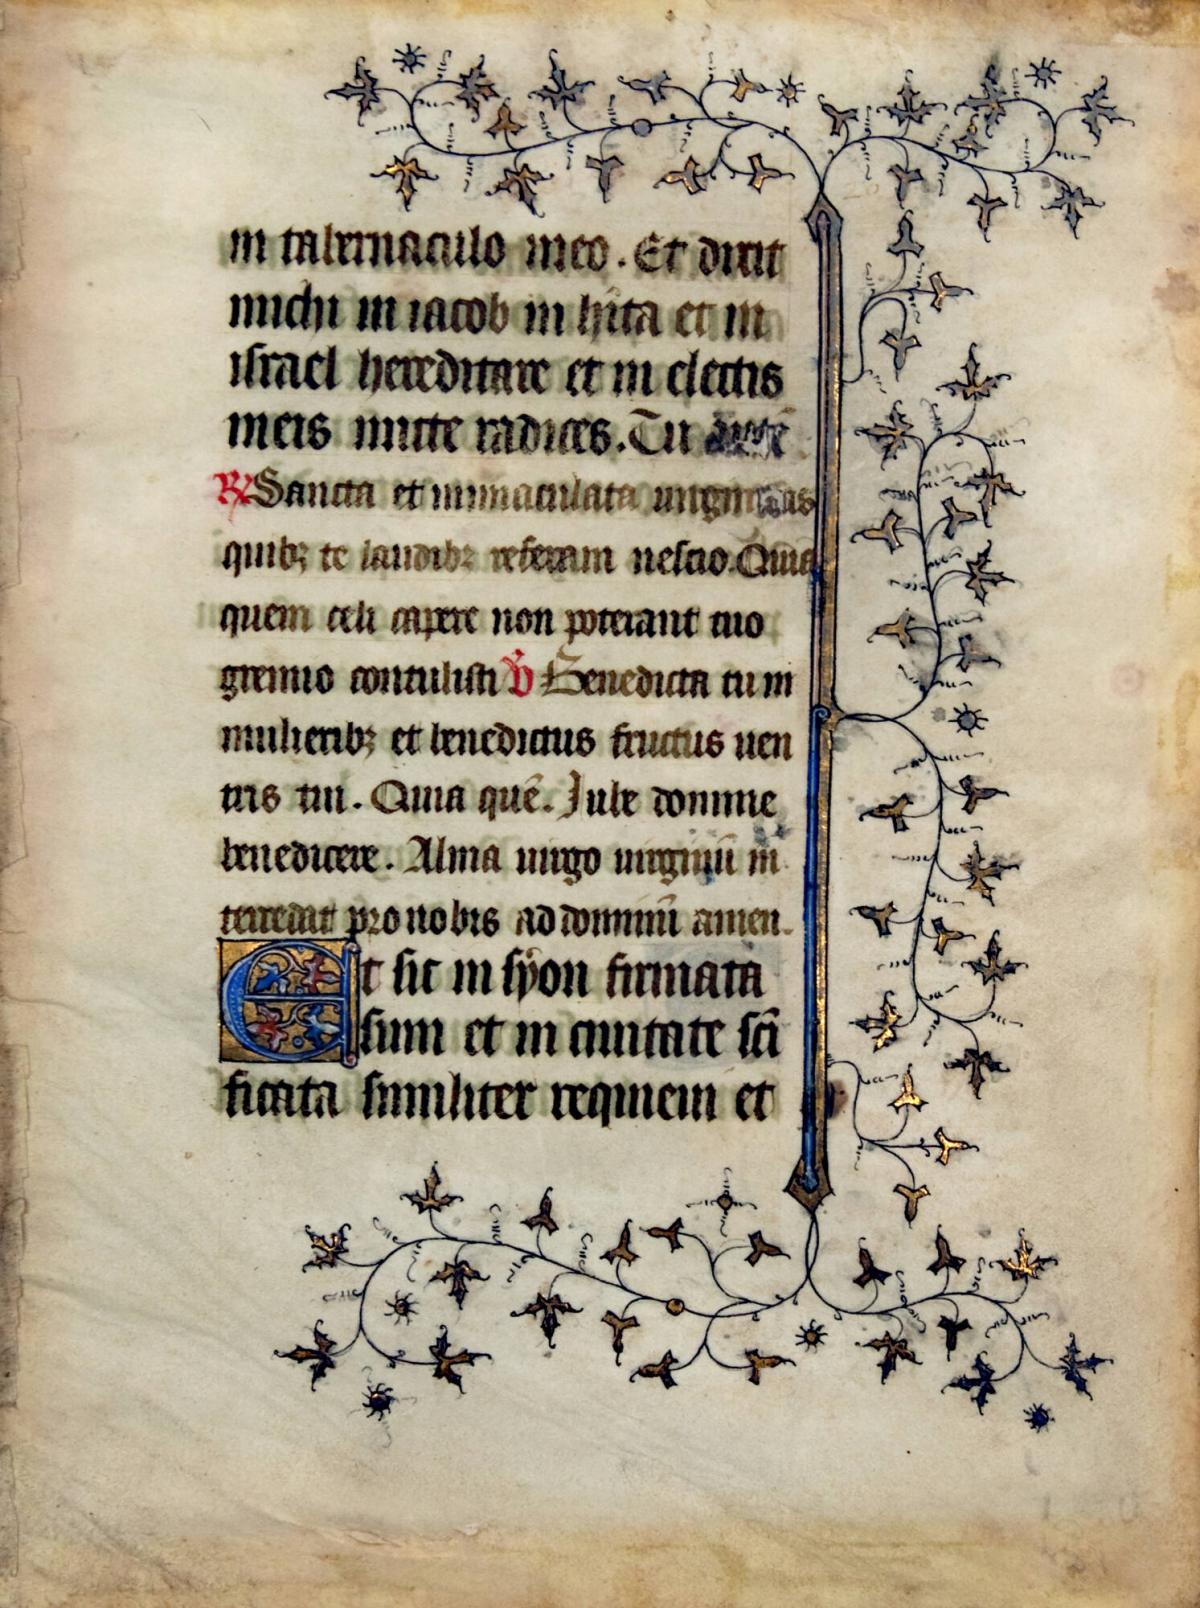 in tabernaculo meo. Et dixit
michi in iacob in hita et in
israel hereditare et in electis
meis mitte radices. Tu autē
R Sancta et immaculata uirginitas
quibꝫ te laudibꝫ referam nescio. Quia
quem celi capere non poterant tuo
gremio contulisti V Benedicta tu in
mulieribꝫ et benedictus fructus uen
tris tui. Quia quē. Iube domine
benedicere. Alma uirgo uirginū in
tercedat pro nobis ad dominū amen.
Et sic in syon firmata
sum et in ciuitate scī
ficata similiter requieui et